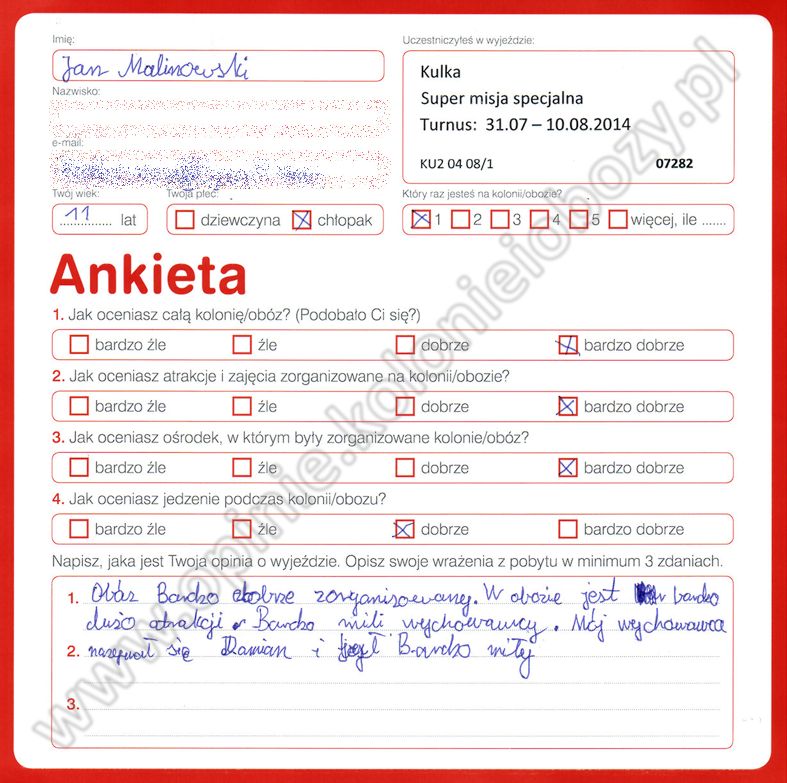 Imię:
Uczestniczyłeś w wyjeździe:
Jan Malinowski
Kulka
Super misja specjalna
Turnus: 31.07 – 10.08.2014
KU2 04 08/1 07282
Nazwisko:
e-mail:
Twój wiek: Twoja płeć: Który raz jesteś na kolonii/obozie?
11 lat dziewczyna chłopak 1 2 3 4 5 więcej, ile .......
Ankieta
1. Jak oceniasz całą kolonię/obóz? (Podobało Ci się?)
bardzo źle źle dobrze bardzo dobrze
2. Jak oceniasz atrakcje i zajęcia zorganizowane na kolonii/obozie?
bardzo źle źle dobrze bardzo dobrze
3. Jak oceniasz ośrodek, w którym były zorganizowane kolonie/obóz?
bardzo źle źle dobrze bardzo dobrze
4. Jak oceniasz jedzenie podczas kolonii/obozu?
bardzo źle źle dobrze bardzo dobrze
Napisz, jaka jest Twoja opinia o wyjeździe. Opisz swoje wrażenia z pobytu w minimum 3 zdaniach.
1. Obóz Bardzo dobrze zorganisowany. W obozie jest bardzo
dużo atrakcji. Bardzo mili wychowawcy. Mój wychowawca
2. się Damian i był Bardzo miły
3.
www.opinie.kolonieiobozy.pl